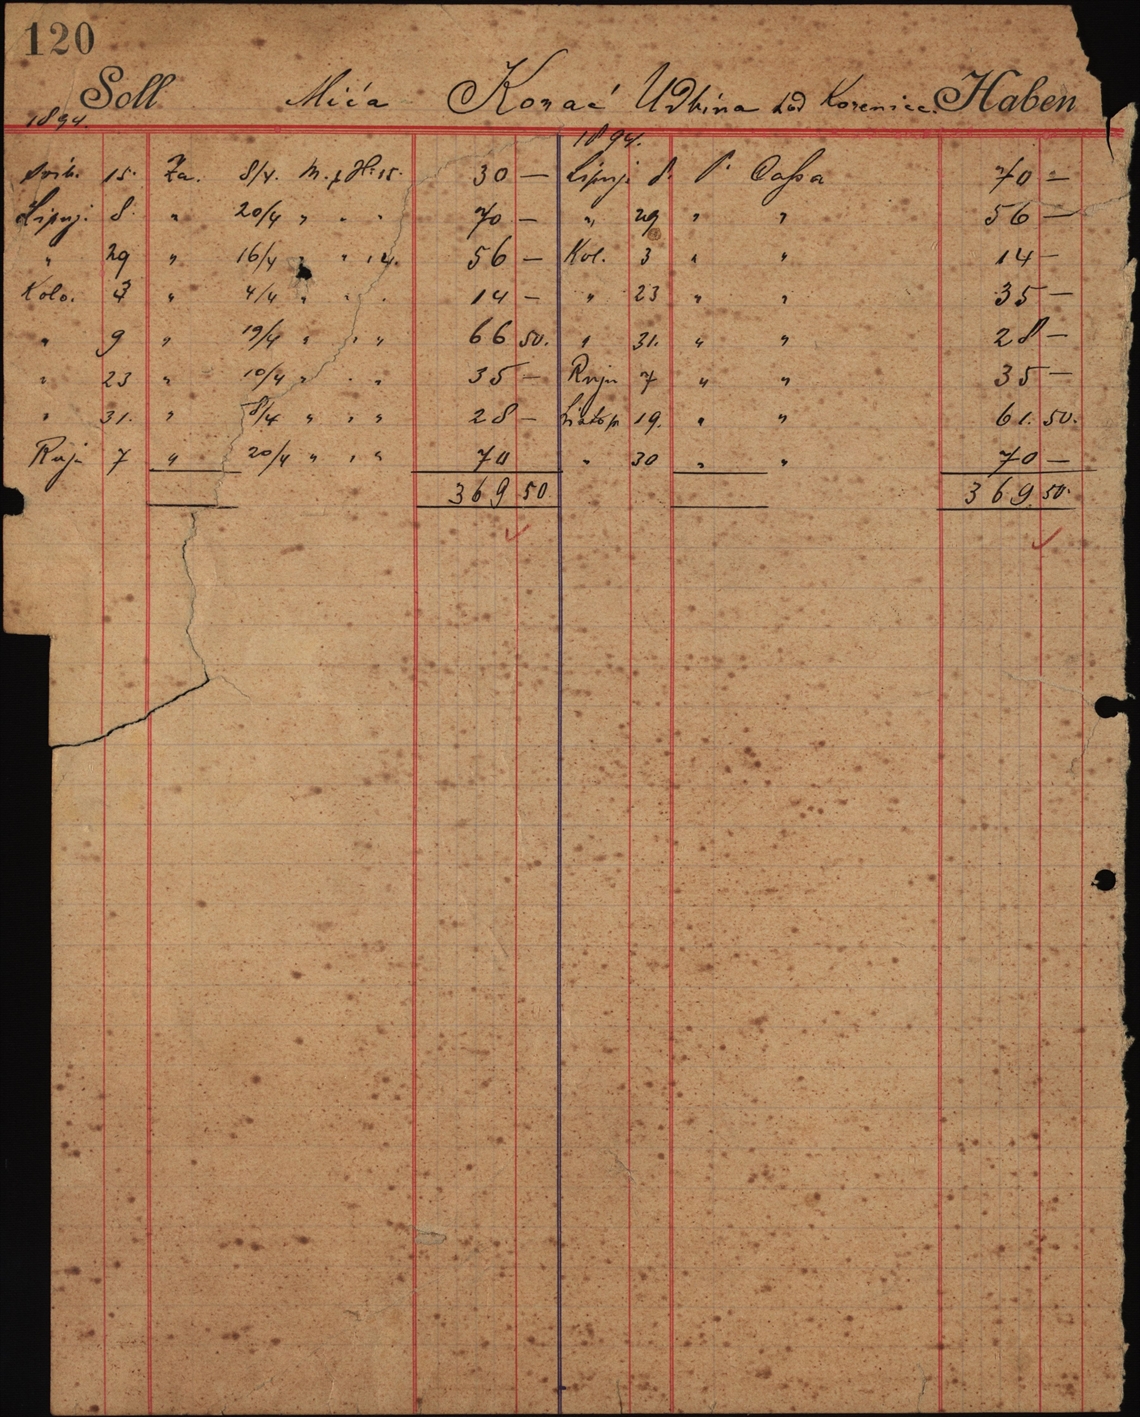 120
Soll Mića Korać Udbina kod Korenice Haben
1894. 1894.
Svib. 15. Za. 8/4. M. f H. 15. 30 — Lipnj. 8. P. Cassa 70 —
Lipnj. 8. " 20/4 " " " 70 — " 29 " " 56 —
" 29 " 16/4 " " 14. 56 — Kol. 3 " " 14 —
Kolo. 3 " 4/4 " " " 14 — " 23 " " 35 —
" 9 " 19/4 " " " 66 50. " 31. " " 28 —
" 23 " 10/4 " " " 35 — Ruja 7 " " 35 —
" 31. " 8/4 " " " 28 — Listop 19. " " 61. 50.
Ruja 7 " 20/4 " " " 70 " 30 " " 70 —
369 50 369. 50.